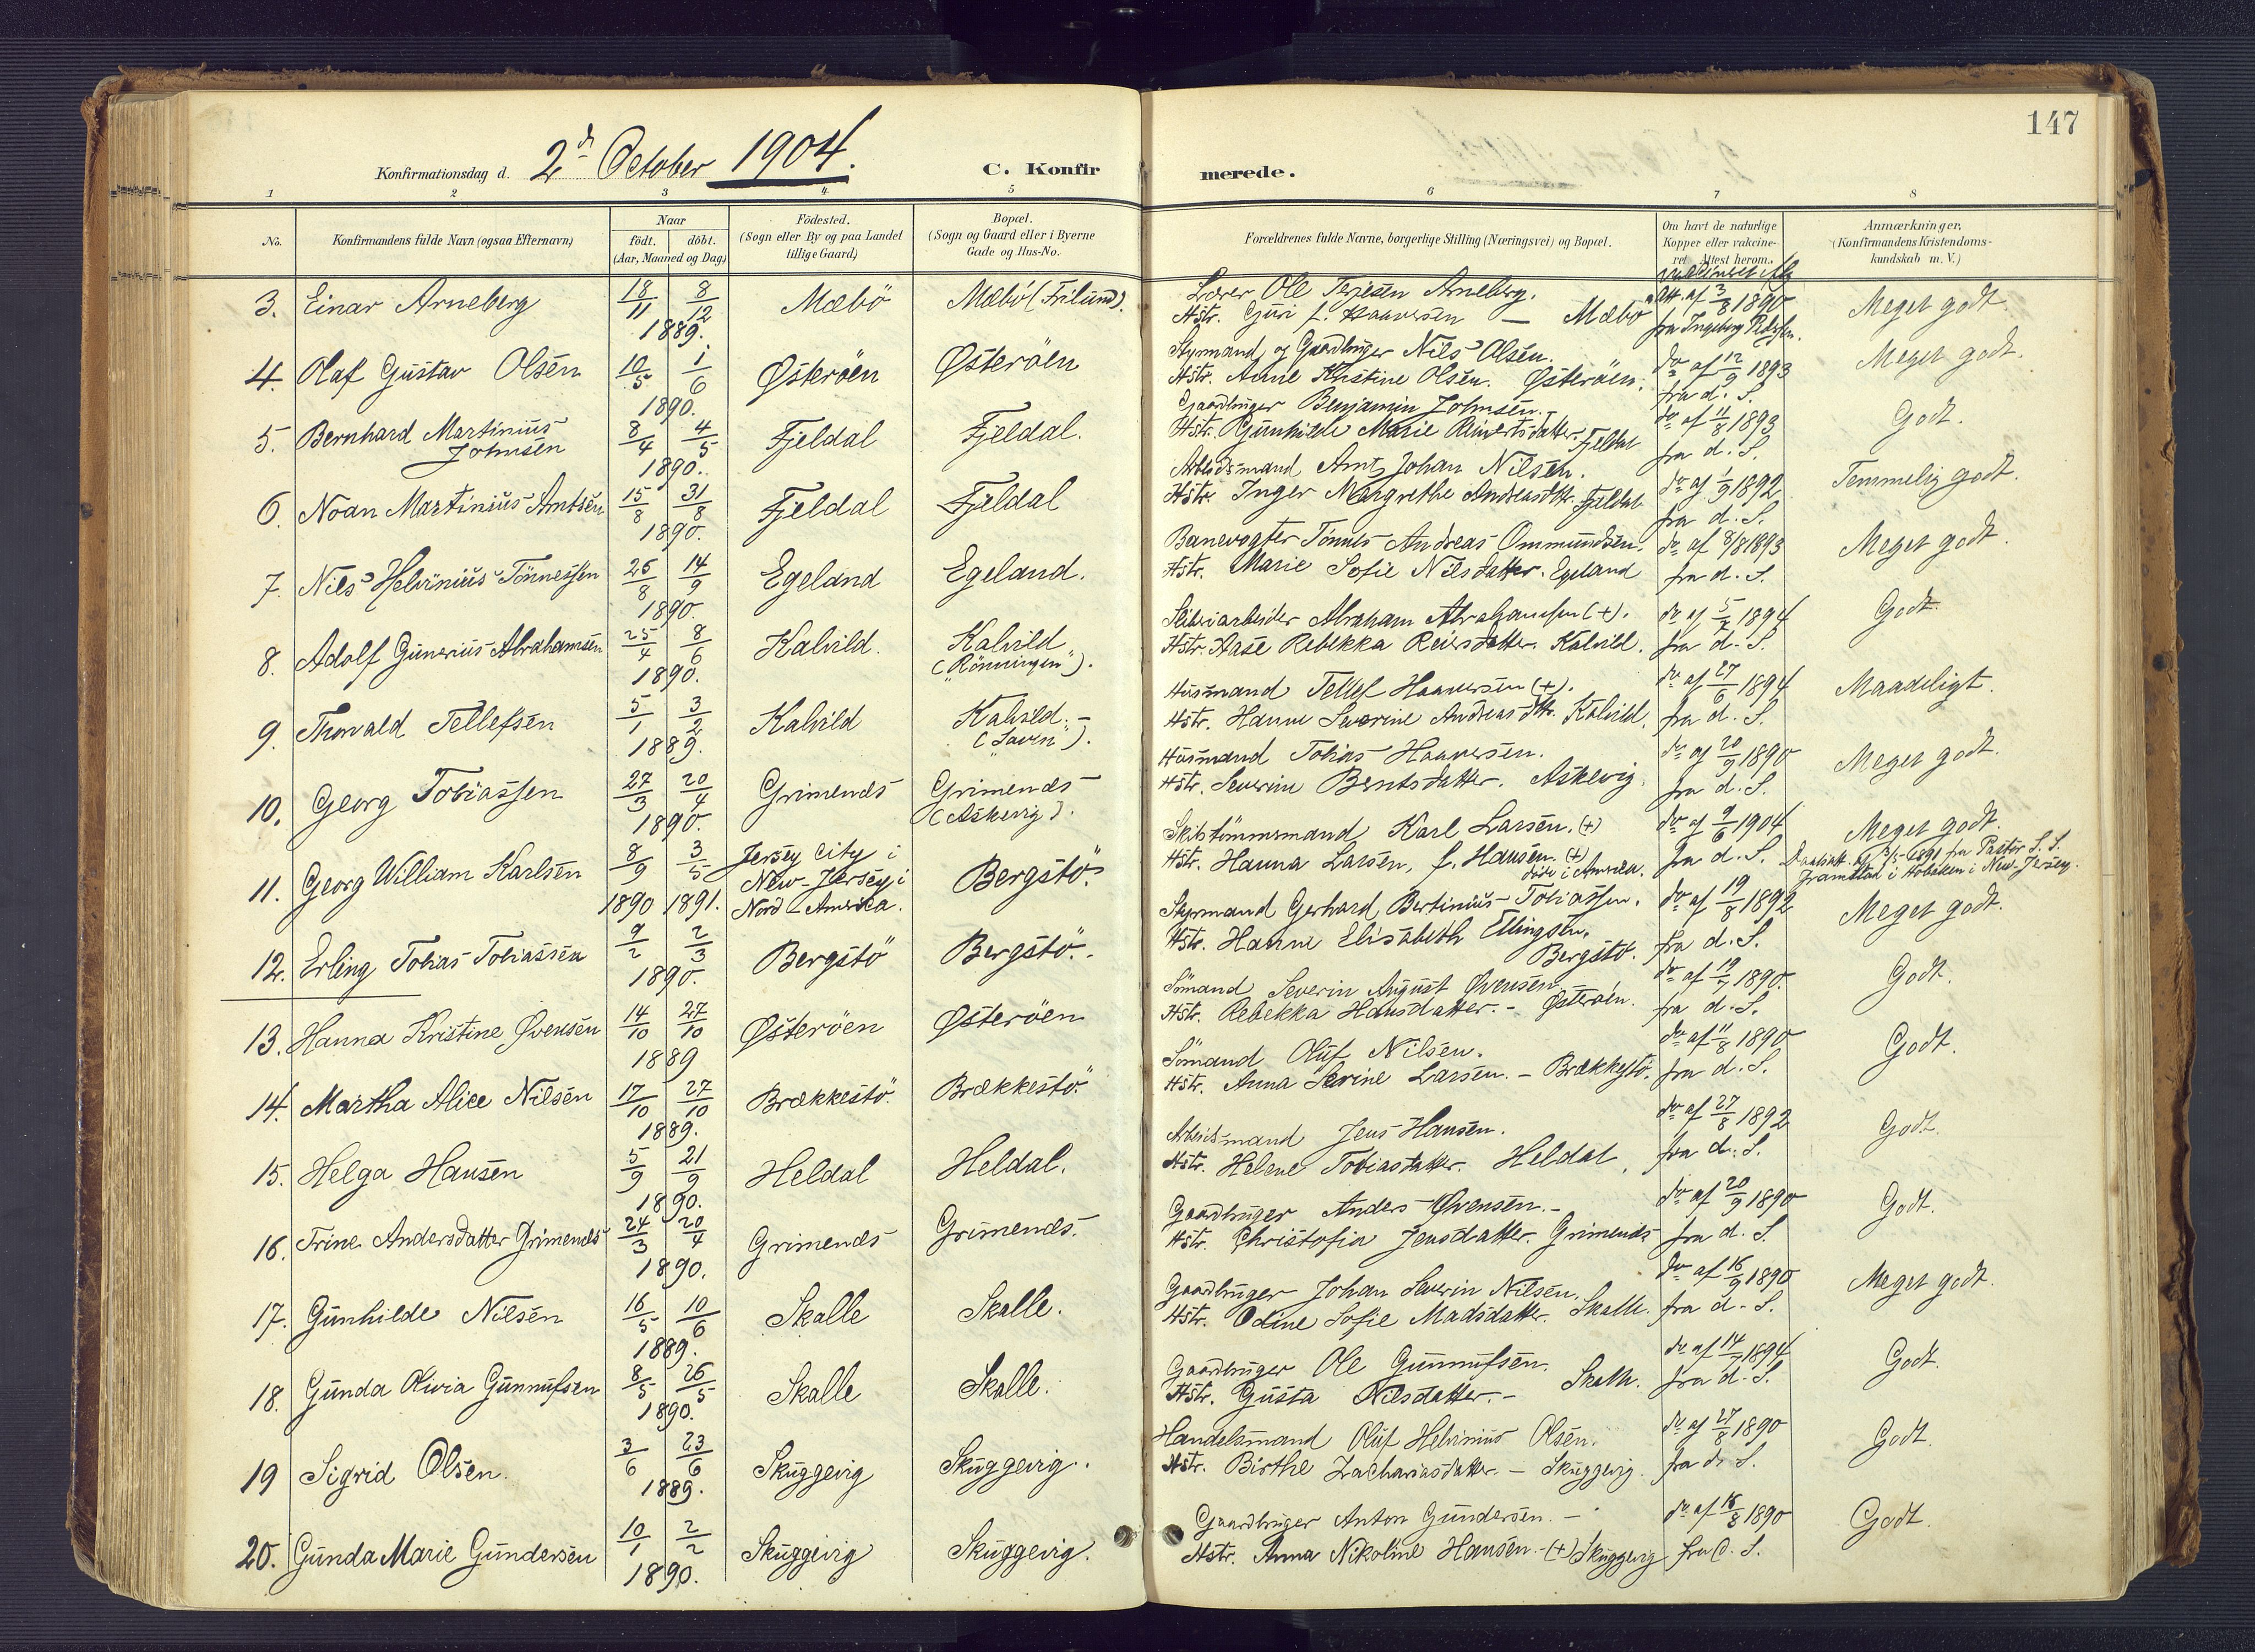 147
Konfirmationsdag d. 2d October 1904.
C. Konfirmerede.
1 2 3 4 5 6 7 8
No. Konfirmandens fulde Navn (ogsaa Efternavn) Naar födt. döbt. (Aar, Maaned og Dag) Födested. (Sogn eller By og paa Landet tillige Gaard) Bopæl. (Sogn og Gaard eller i Byerne Gade og Hus-No. Forældrenes fulde Navne, borgerlige Stilling (Næringsvei) og Bopæl. Om havt de naturlige Kopper eller vakcineret. Attest herom. Anmærkninger, (Konfirmandens Kristendomskundskab m. V.)
3. Einar Arneberg 18/11 8/12 1889. Mæbö Mæbö (Frilund).
Lærer Ole Terjesen Arneberg.
Hstr. Guri f. Haaversen — Mæbö
Att. af 3/8 1890 Meget godt.
4. Olaf Gustav Olsen 10/5 1/6 1890. Østeröen Østeröen
Styrmand og Gaardbruger Nils Olsen.
Hstr. Anne Kristine Olsen. Østeröen.
do af 12/9 1893 fra d. S. Meget godt.
5. Bernhard Martinius Johnsen 8/4 4/5 1890. Fjeldal Fjeldal.
Gaardbruger Benjamin Johnsen.
Hstr. Gunhilde Marie Reinertsdatter. Fjeldal
do af 11/8 1893 fra d. S. Godt.
6. Noan Martinius Arntsen 15/8 31/8 1890. Fjeldal Fjeldal
Arbeidsmand Arnt Johan Nilsen.
Hstr. Inger Margrethe Andreasdtr. Fjeldal
do af 1/9 1892 fra d. S. Temmelig godt.
7. Nils Helvinius Tönnessen 26/8 14/9 1890. Egeland Egeland.
Banevogter Tönnes Andreas Ommundsen.
Hstr. Marie Sofie Nilsdatter. Egeland
do af 8/8 1893 fra d. S. Meget godt.
8. Adolf Gunerius Abrahamsen 25/4 8/6 1890. Kalvild. Kalvild ("Rönningen").
Sliberiarbeider Abraham Abrahamsen (+).
Hstr. Aase Rebekka Reiersdatter. Kalvild.
fra d. S. Godt.
9. Thorvald Tellefsen 5/1 3/2 1889. Kalvild Kalvild.
Husmand Tellef Haaversen (+).
Hstr. Hanne Severine Andreasdtr. Kalvild.
do af 27/6 1894 fra d. S. Maadeligt.
10. Georg Tobiassen 27/3 20/4 1890. Grimenes Grimenes (Askevig).
Husmand Tobias Haaversen.
Hstr. Severine Bentsdatter. Askevig.
do af 20/9 1890 fra d. S. Meget godt.
11. Georg William Karlsen 8/9 1890 3/5 1891. Jersey City i New-Jersey i Nord-Amerika. Bergstö
Skibstömmermand Karl Larsen. (+)
Hstr. Hanna Larsen, f. Hansen. (+) döde i Amerika.
do af 9/6 1904 fra d. S. Meget godt.
fra Pastor S. S. i Hoboken i New-Jersey.
12. Erling Tobias Tobiassen 9/2 2/3 1890. Bergstö Bergstö.
Styrmand Gerhard Bertinius Tobiassen.
Hstr. Hanne Elisabeth Ellingsen. Bergstö.
do af 19/8 1892 fra d. S. Meget godt.
13. Hanna Kristine Øvensen 14/10 27/10 1889 Østeröen Østeröen
Sömand Severin August Øvensen
Hstr. Rebekka Hansdatter. - Österöen.
fra d. S. Godt.
14. Martha Alice Nilsen 17/10 27/10 1889. Brækkestö. Brækkestö.
Sömand Oluf Nilsen.
Hstr. Anna Sevrine Larsen. - Brækkestö.
do af 11/8 1890 fra d. S. Godt.
15. Helga Hansen 5/9 21/9 1890. Heldal Heldal.
Arbeidsmand Jens Hansen.
Hstr. Helene Tobiasdatter. Heldal.
do af 27/8 1892 fra d. S. Godt.
16. Trine Andersdatter Grimenes 24/3 20/4 1890. Grimenes Grimenes.
Gaardbruger Anders Øvensen. -
Hstr. Christofia Jensdatter. Grimenes
do af 20/9 1890 fra d. S. Godt.
17. Gunhilde Nilsen 16/5 10/6 1889. Skalle Skalle.
Gaardbruger Johan Severin Nilsen.
Hstr. Odine Sofie Madsdatter. Skalle.
do af 16/9 1890 fra d. S. Meget godt.
18. Gunda Olivia Gunnufsen 8/5 26/5 1890. Skalle Skalle.
Gaardbruger Ole Gunnufsen.
Hstr. Gusta Nilsdatter. - Skalle.
fra d. S. Godt.
19 Sigrid Olsen. 3/6 23/6 1889. Skuggevig Skuggevig.
Handelsmand Oluf Helvinius Olsen.
Hstr. Birthe Zachariasdatter. - Skuggevig.
do af 27/8 1890 fra d. S. Godt.
20. Gunda Marie Gundersen 10/1 2/2 1890. Skuggevig Skuggevig.
Gaardbruger Anton Gundersen. -
Hstr. Anna Nikoline Hansen. - (+) Skuggevig
do af 16/8 1890 fra d. S. Godt.